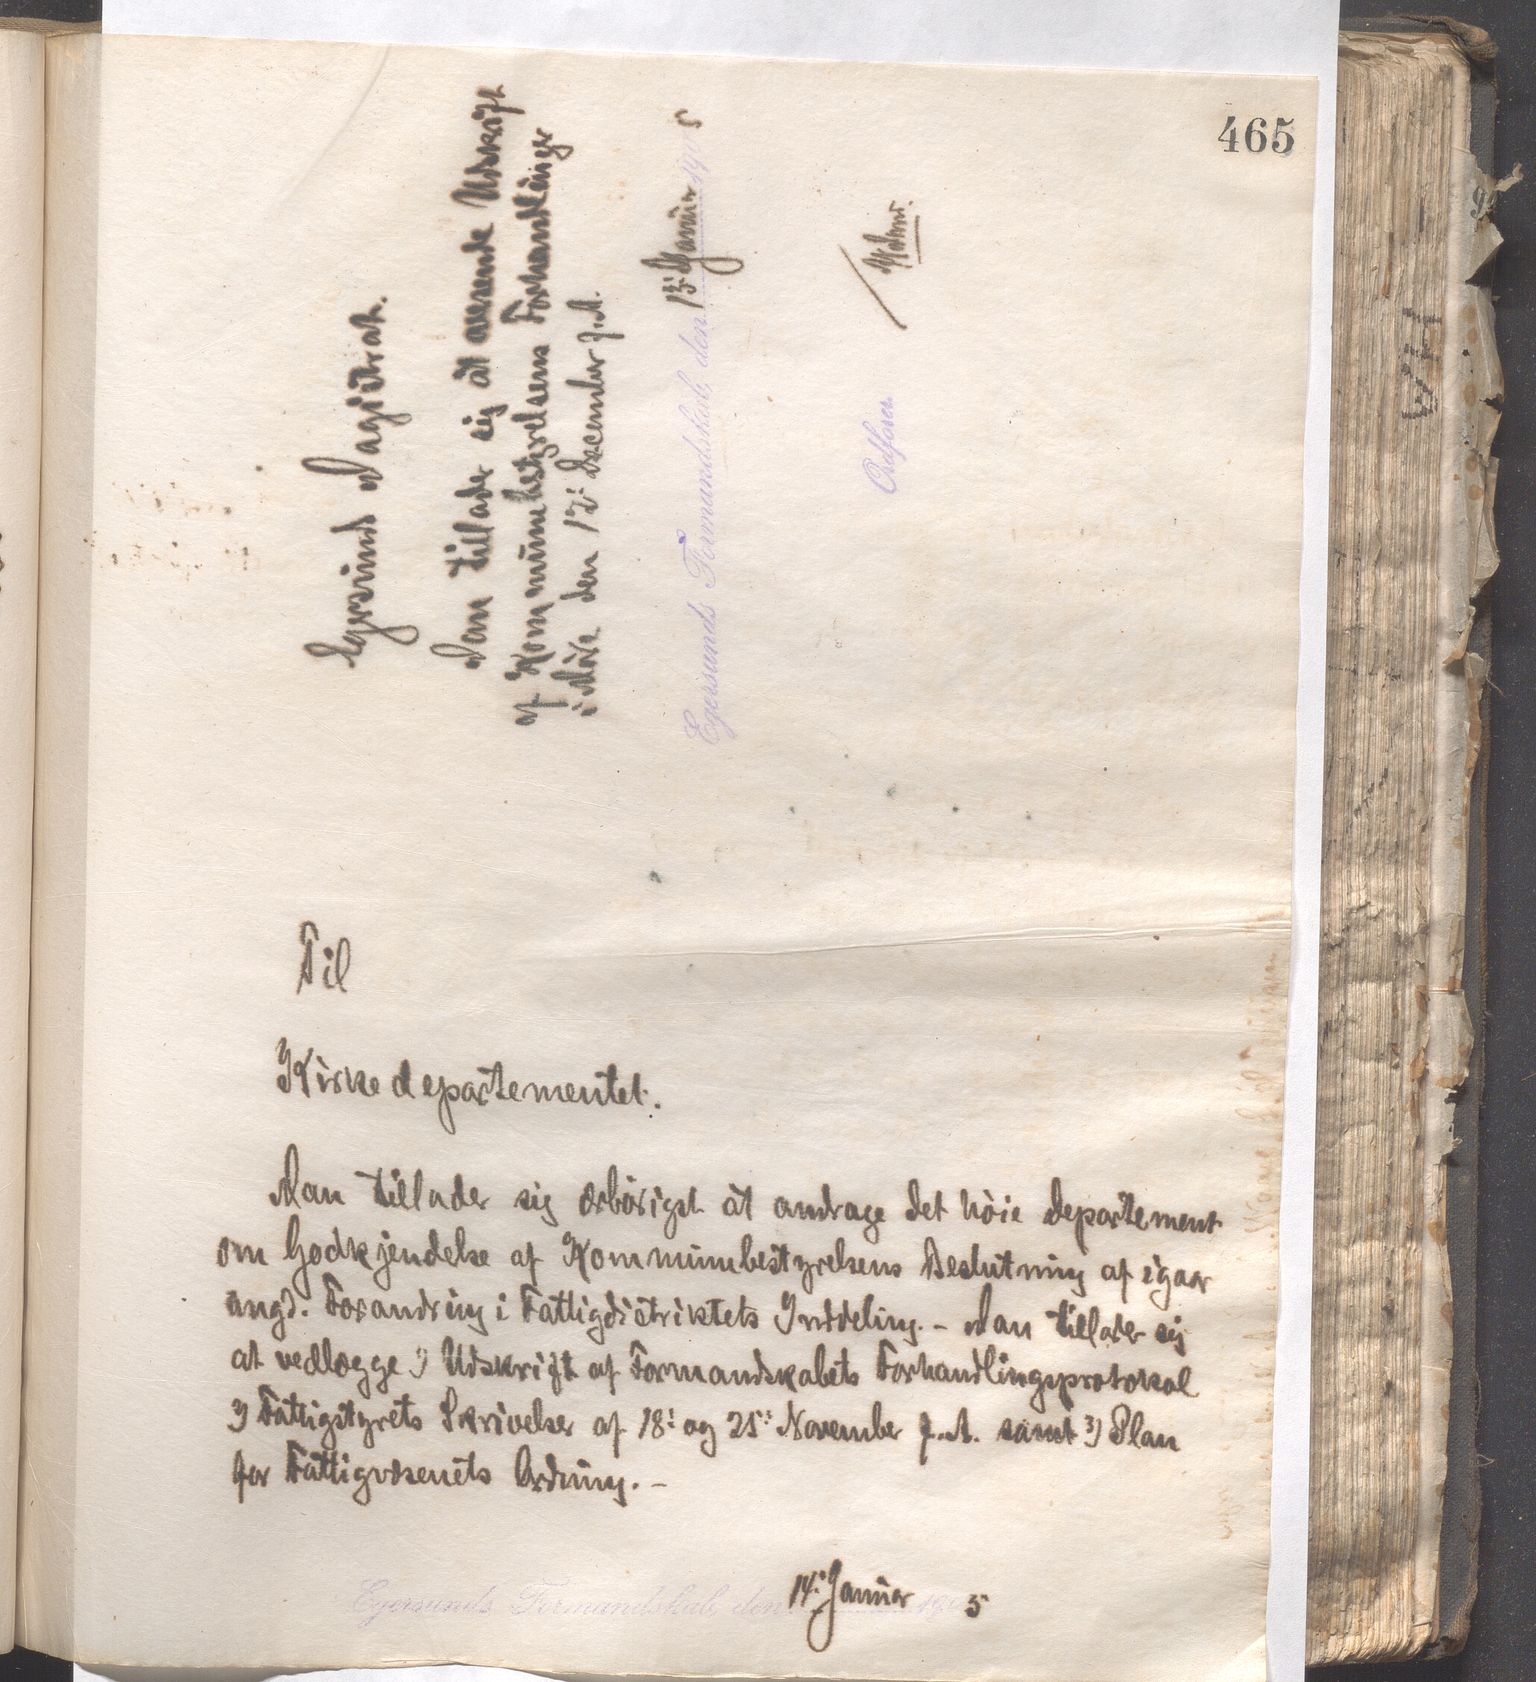 465
Egersunds Magistrat.
Man tillader sig at oversende Udskrift
af Kommunebestyrelsens Forhandlinger
i Møde den 12: December f. A.
Egersunds Formandskab, den 13: Januar 1905
Ordfører.
Til
Kirkedepartementet.
Man tillader sig ærbødigst at andrage det høie Departement
om Godkjendelse af Kommunebestyrelsens Beslutning af igaar
angd. Forandring i Fattigdistriktets Inddeling. - Man tillader sig
at vedlægge 1) Udskrift af Formandskabets Forhandlingsprotokol
2) Fattigstyrets Skrivelser af 18: og 25: November f. A. samt 3) Plan
for Fattigvæsenets Ordning. -
Egersunds Formandskab, den 14: Januar 1905